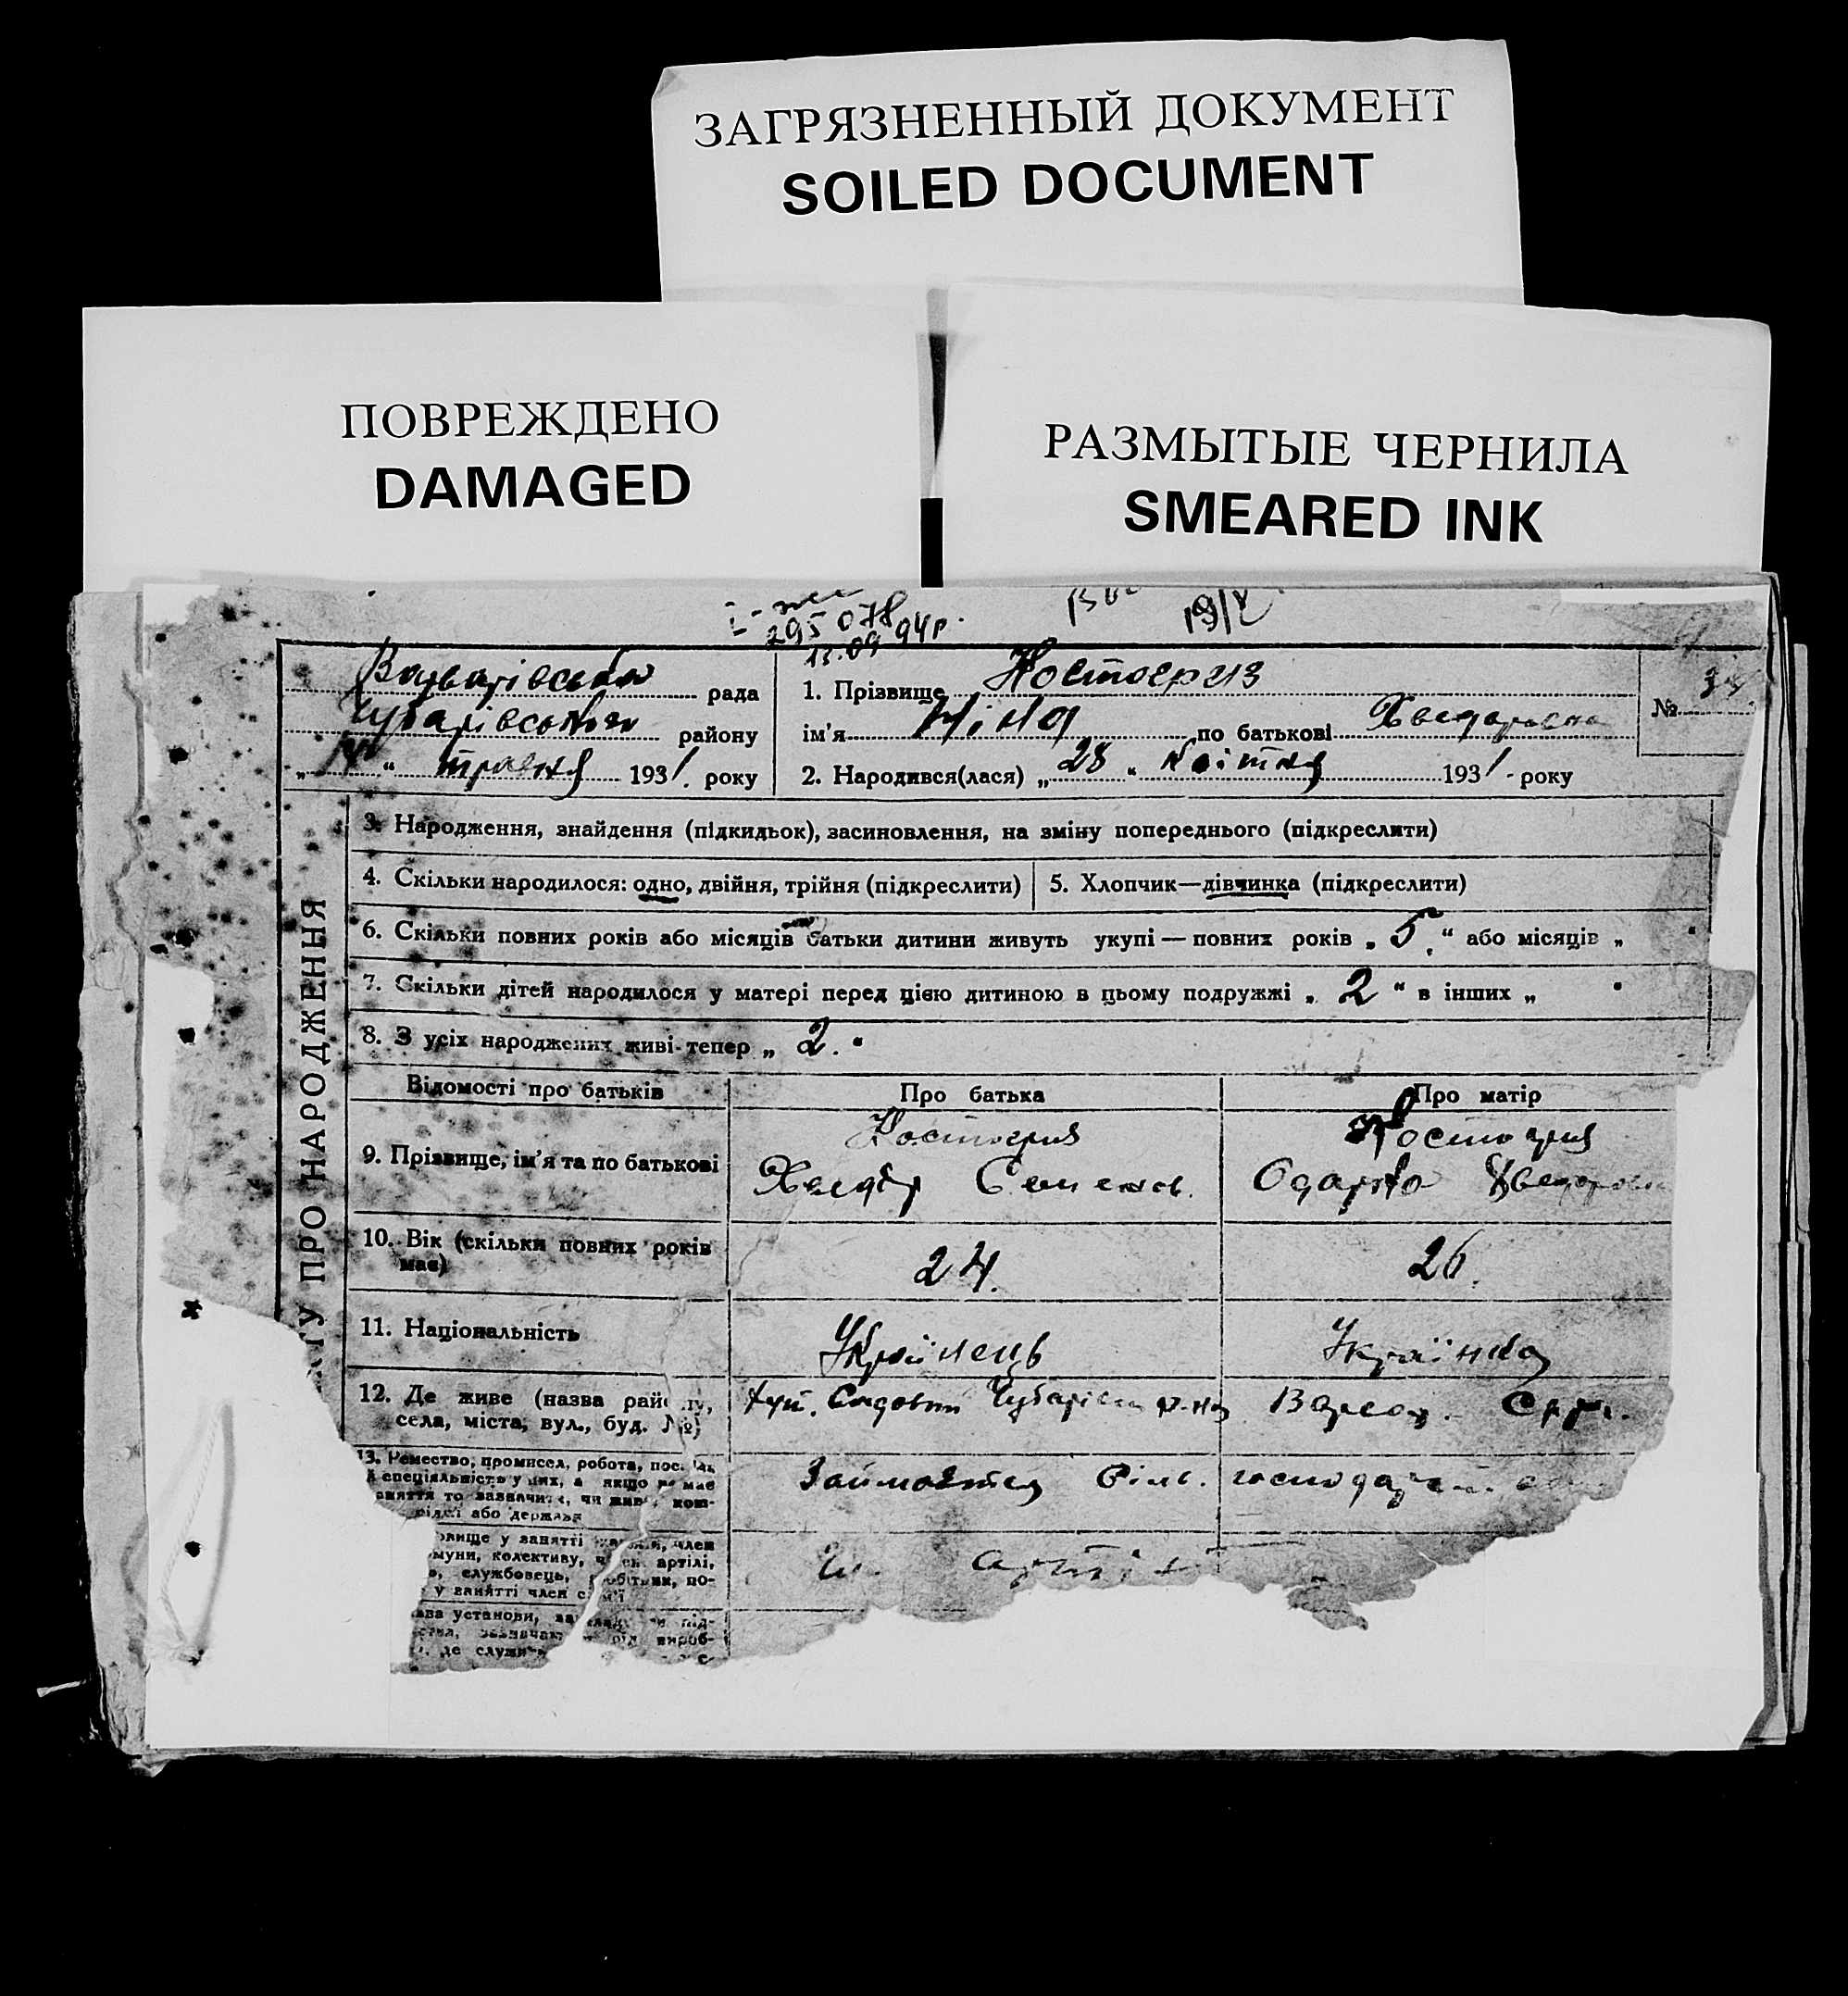 ЗАГРЯЗНЕННЫЙ ДОКУМЕНТ
SOILED DOCUMENT
ПОВРЕЖДЕНО
DAMAGED
РАЗМЫТЫЕ ЧЕРНИЛА
SMEARED INK
295 078
13.09 94р.
рада
Чубарівського району
травня 1931. року
1. Прізвище Костогриз
ім'я Ніна по батькові Хведорівна
№
2. Народився(лася) „28“ квітня 1931. року
АКТУ ПРО НАРОДЖЕННЯ
3. Народження, знайдення (підкидьок), засиновлення, на зміну попереднього (підкреслити)
4. Скільки народилося: одно, двійня, трійня (підкреслити)
5. Хлопчик—дівчинка (підкреслити)
6. Скільки повних років або місяців батьки дитини живуть укупі — повних років „5“ або місяців „ "
7. Скільки дітей народилося у матері перед цією дитиною в цьому подружжі „2“ в інших „ "
8. З усіх народжених живі тепер „2."
Відомості про батьків
Про батька
Про матір
9. Прізвище, ім'я та по батькові
Костогриз
Хведір Семенов.
Костогриз
Одарка
10. Вік (скільки повних років має)
24.
26.
11. Національність
Українець
Українка
12. Де живе (назва району,
села, міста, вул., буд. №)
хут. Садовий р-на
13. Ремество, промисел, робота, пос
спеціяльність у них, а якщо не має
заняття то зазначити, чи живе кош-
або держави
Займаются сільс. господар
у занятті член
муни, колективу, член артілі,
службовець, робітник, по-
у занятті член
установи, під-
вироб-
де служи